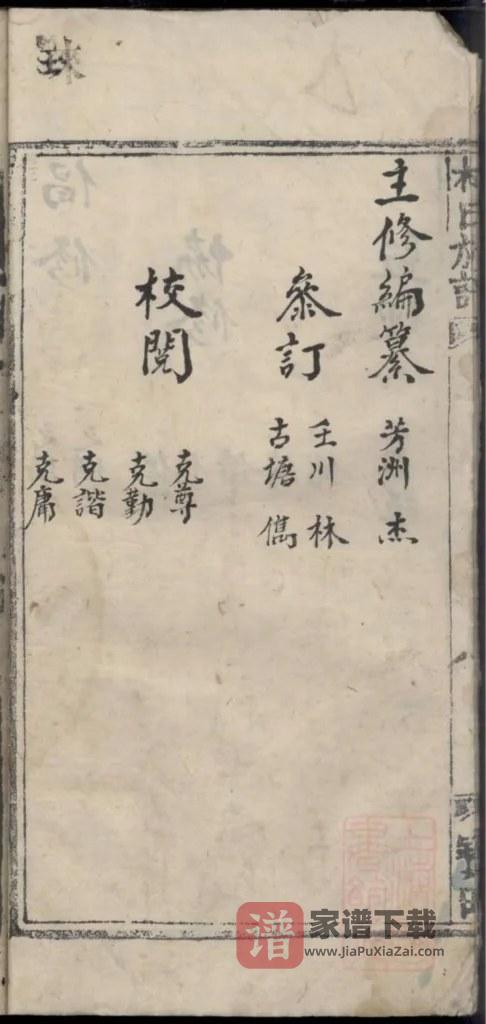 主修編纂
芳洲 杰
叅訂
壬川 林
古塘 儁
校閱
克尊
克勤
克諧
克庸
協修
倡修
谱 家谱下载
www.JiaPuXiaZai.com